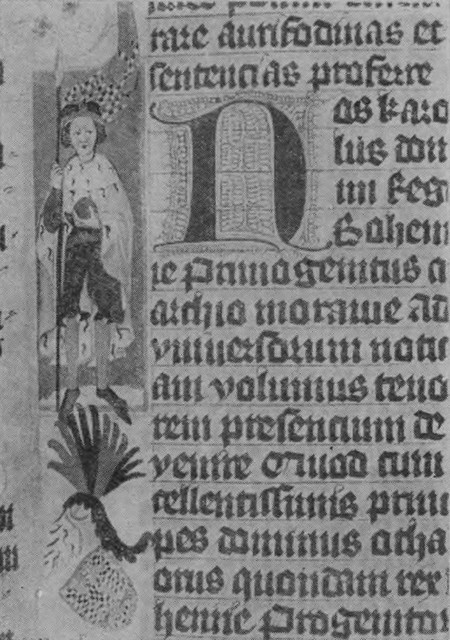 rare aurifodinas et
sentencias proferre
Nos karo
lus dom
ini Reg
Bohem
ie Primogenitus
archio morauie Ad
vniuersorum noti
am volumus teno
rem presencium de
venire Quod cum
cellentissimus prin
pes dominus otha
orus quondam rex
hemie Progenitor